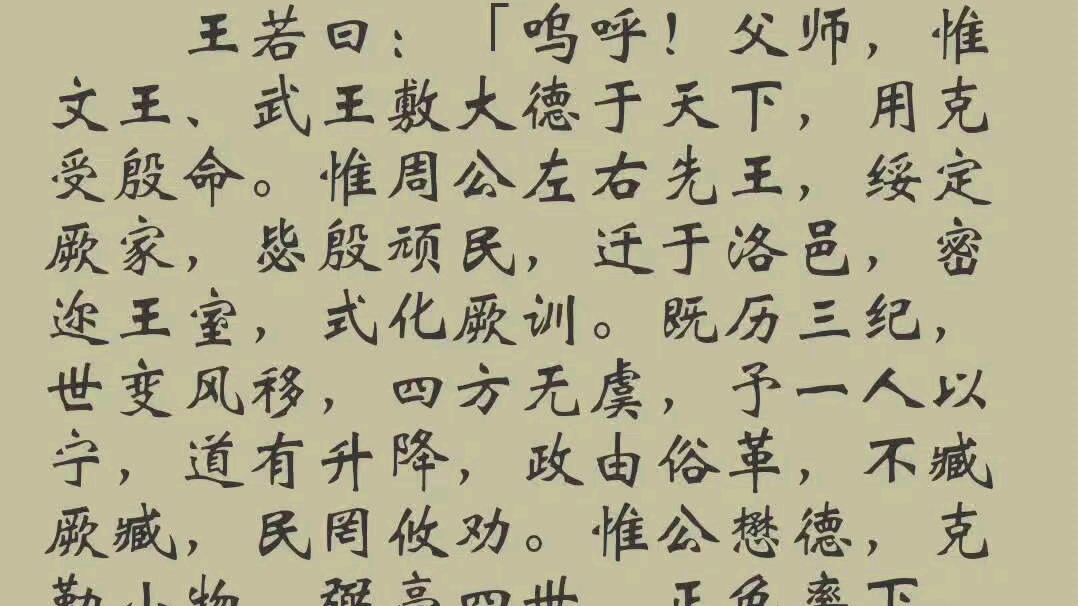 王若曰：「呜呼！父师，惟
文王、武王敷大德于天下，用克
受殷命。惟周公左右先王，绥定
厥家，毖殷顽民，迁于洛邑，密
迩王室，式化厥训。既历三纪，
世变风移，四方无虞，予一人以
宁，道有升降，政由俗革，不臧
厥臧，民罔攸劝。惟公懋德，克
勤小物，弼亮四世，正色率下，